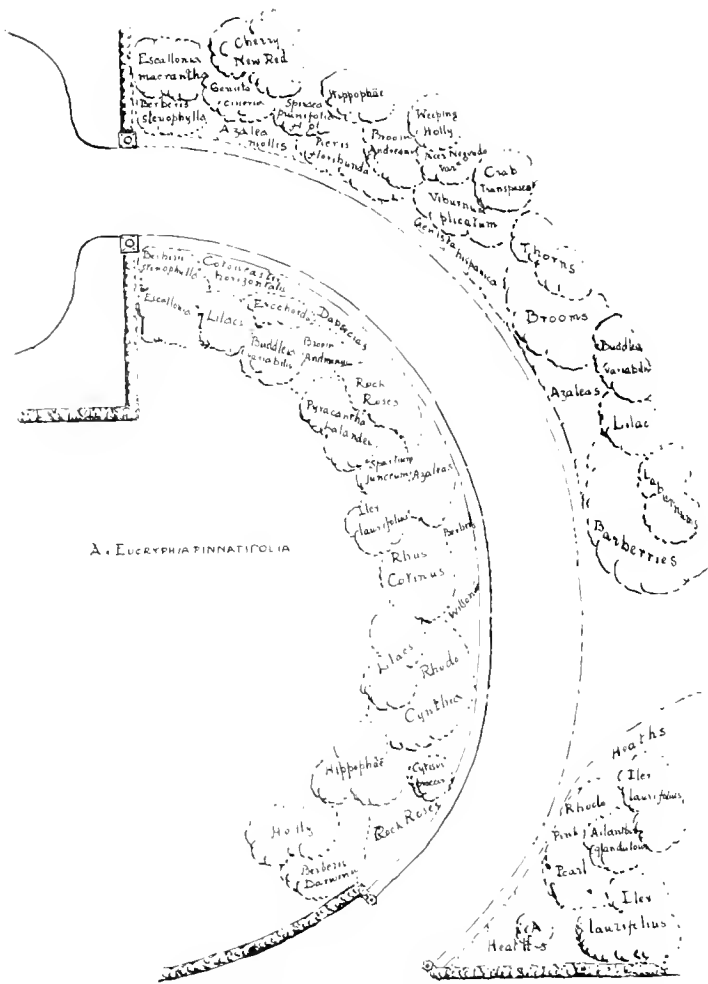 Escallonia
macrantha
Cherry
New Red
Berberis
stenophylla
Genista
cineria
Azalea
mollis
Spiraea
prunifolia
fl pl
Pieris
floribunda
Hippophäe
Broom
Andreana
Weeping
Holly
Acer Negundo
var
Crab
Transparent
Viburnum
plicatum
Genista hispanica
Thorns
Brooms
Buddleia
variabilis
Azaleas
Lilac
Laburnums
Barberries
Berberis
stenophylla
Cotoneaster
horizontalis
Escallonia
Lilacs
Exochorda
Daboecias
Buddleia
variabilis
Broom
Andreana
Rock
Roses
Pyracantha
Lalandei
Spartium
Junceum
Azaleas
Ilex
laurifolius
Berberis
A. EUCRYPHIA PINNATIFOLIA
Rhus
Cotinus
Wilsonii
Lilacs
Rhodo
Cynthia
Hippophäe
Cytisus
praecox
Rock Roses
Holly
Berberis
Darwinii
Heaths
Ilex
laurifolius
Rhodo
Pink
Pearl
Ailanthus
glandulosa
Ilex
laurifolius
A
Heaths